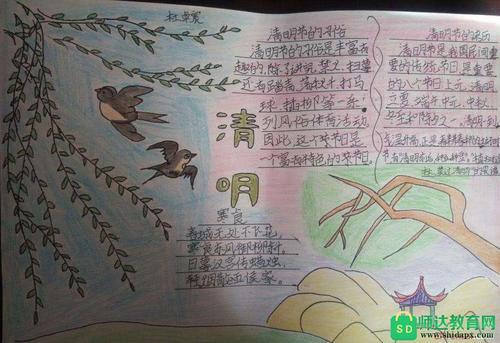 清明节的习俗
清明节的习俗是丰富有
趣的,除了讲究禁火、扫墓
还有踏青、荡秋千、打马
球、插柳等一系
列风俗体育活动
因此,这个节日是
一个富有特色的节日
清明节的来历
清明节是我国民间重
要的传统节日,是重要
的八个节日上元、清明
立夏、端午、中元、中秋
冬至和除夕之一
清明
寒食
春城无处不飞花,
寒食东风御柳斜。
日暮汉宫传蜡烛,
轻烟散入五侯家。
SD 师达教育网
www.shidapx.com